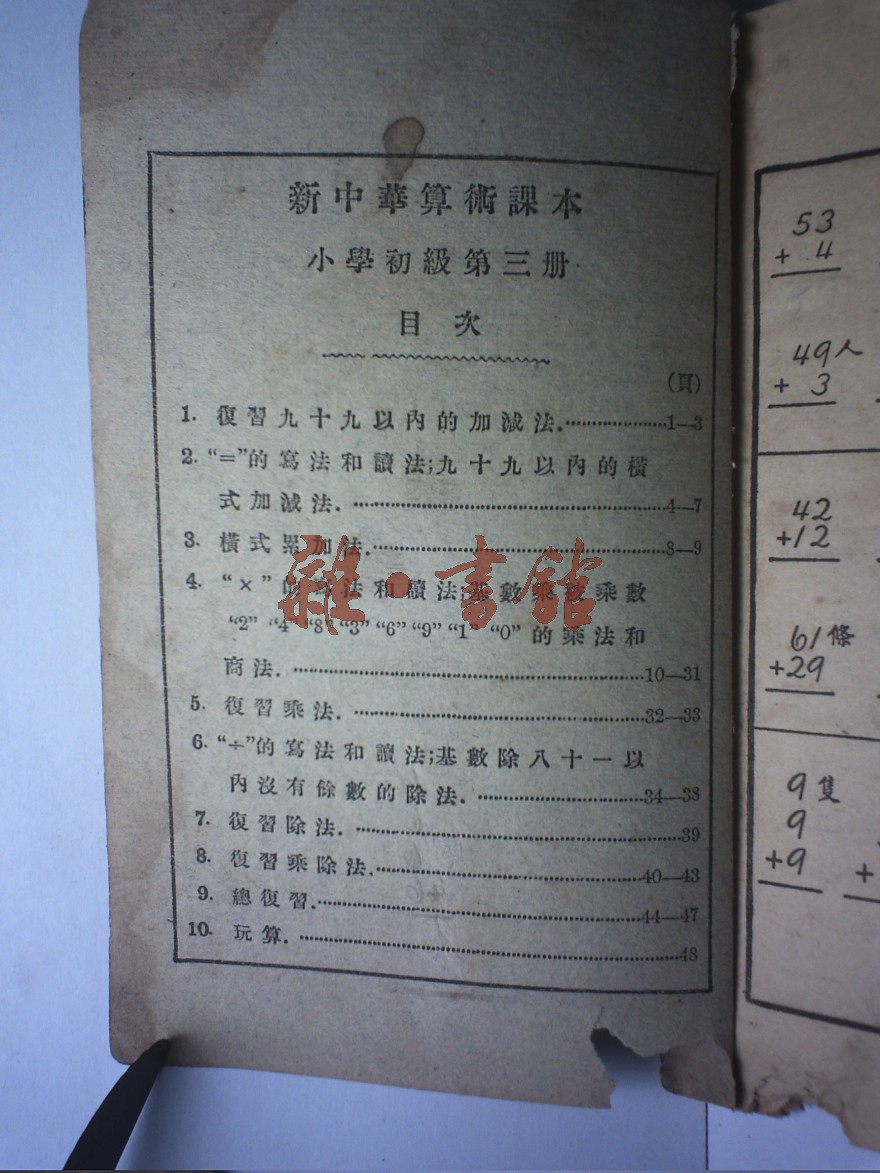 新中華算術課本
小學初級第三册
目次
(頁)
1. 復習九十九以內的加減法. 1—3
2. “=”的寫法和讀法;九十九以內的橫
式加減法. 4—7
3. 橫式累加法. 8—9
4. “×”的寫法和讀法;基數乘被乘數
“2” “4” “8” “3” “6” “9” “1” “0” 的乘法和
商法. 10—31
5. 復習乘法. 32—33
6. “÷”的寫法和讀法;基數除八十一以
內沒有餘數的除法. 34—38
7. 復習除法. 39
8. 復習乘除法. 40—43
9. 總復習. 44—47
10. 玩算. 48
雜·書館
53
+ 4
49人
+ 3
42
+12
61條
+29
9隻
9
+9
+